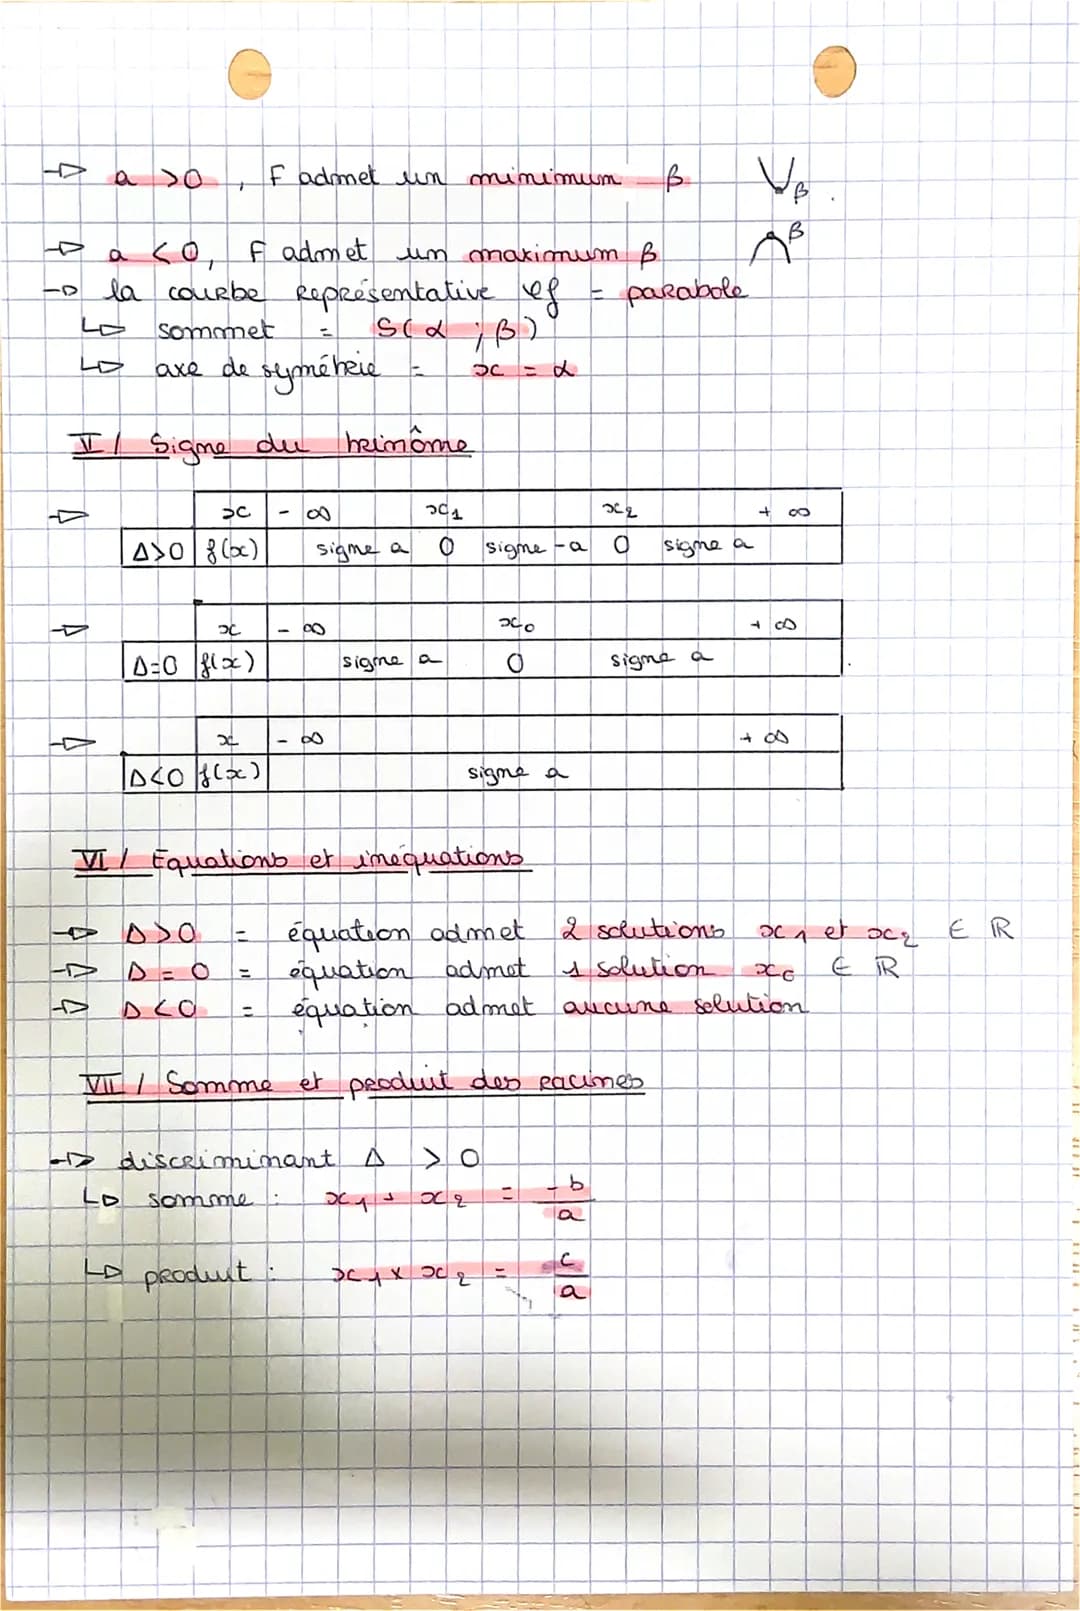 → a >0 , f admet un minimum β β
→ a <0, f admet un maximum β β
→ la courbe représentative Cf = parabole
↳ sommet = S(α ; β)
↳ axe de symétrie = x = α
V/ Signe du trinôme
→ x -∞ x1 x2 +∞
Δ>0 f(x) signe a 0 signe -a 0 signe a
→ x -∞ x0 +∞
Δ=0 f(x) signe a 0 signe a
→ x -∞ +∞
Δ<0 f(x) signe a
VI/ Equations et inéquations
→ Δ>0 = équation admet 2 solutions x1 et x2 ∈ ℝ
→ Δ=0 = équation admet 1 solution x0 ∈ ℝ
→ Δ<0 = équation admet aucune solution
VII/ Somme et produit des racines
→ discriminant Δ > 0
↳ somme : x1 + x2 = -b/a
↳ produit : x1 × x2 = c/a